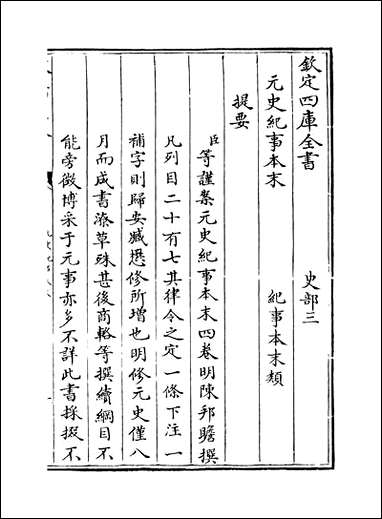 欽定四庫全書　史部三
元史紀事本末　紀事本末類
提要
臣等謹案元史紀事本末四卷明陳邦瞻撰
凡列目二十有七其律令之定一條下注一
補字則歸安臧懋修所增也明修元史僅八
月而成書潦草殊甚後商輅等撰續綱目不
能旁徵博采于元事亦多不詳此書採掇不